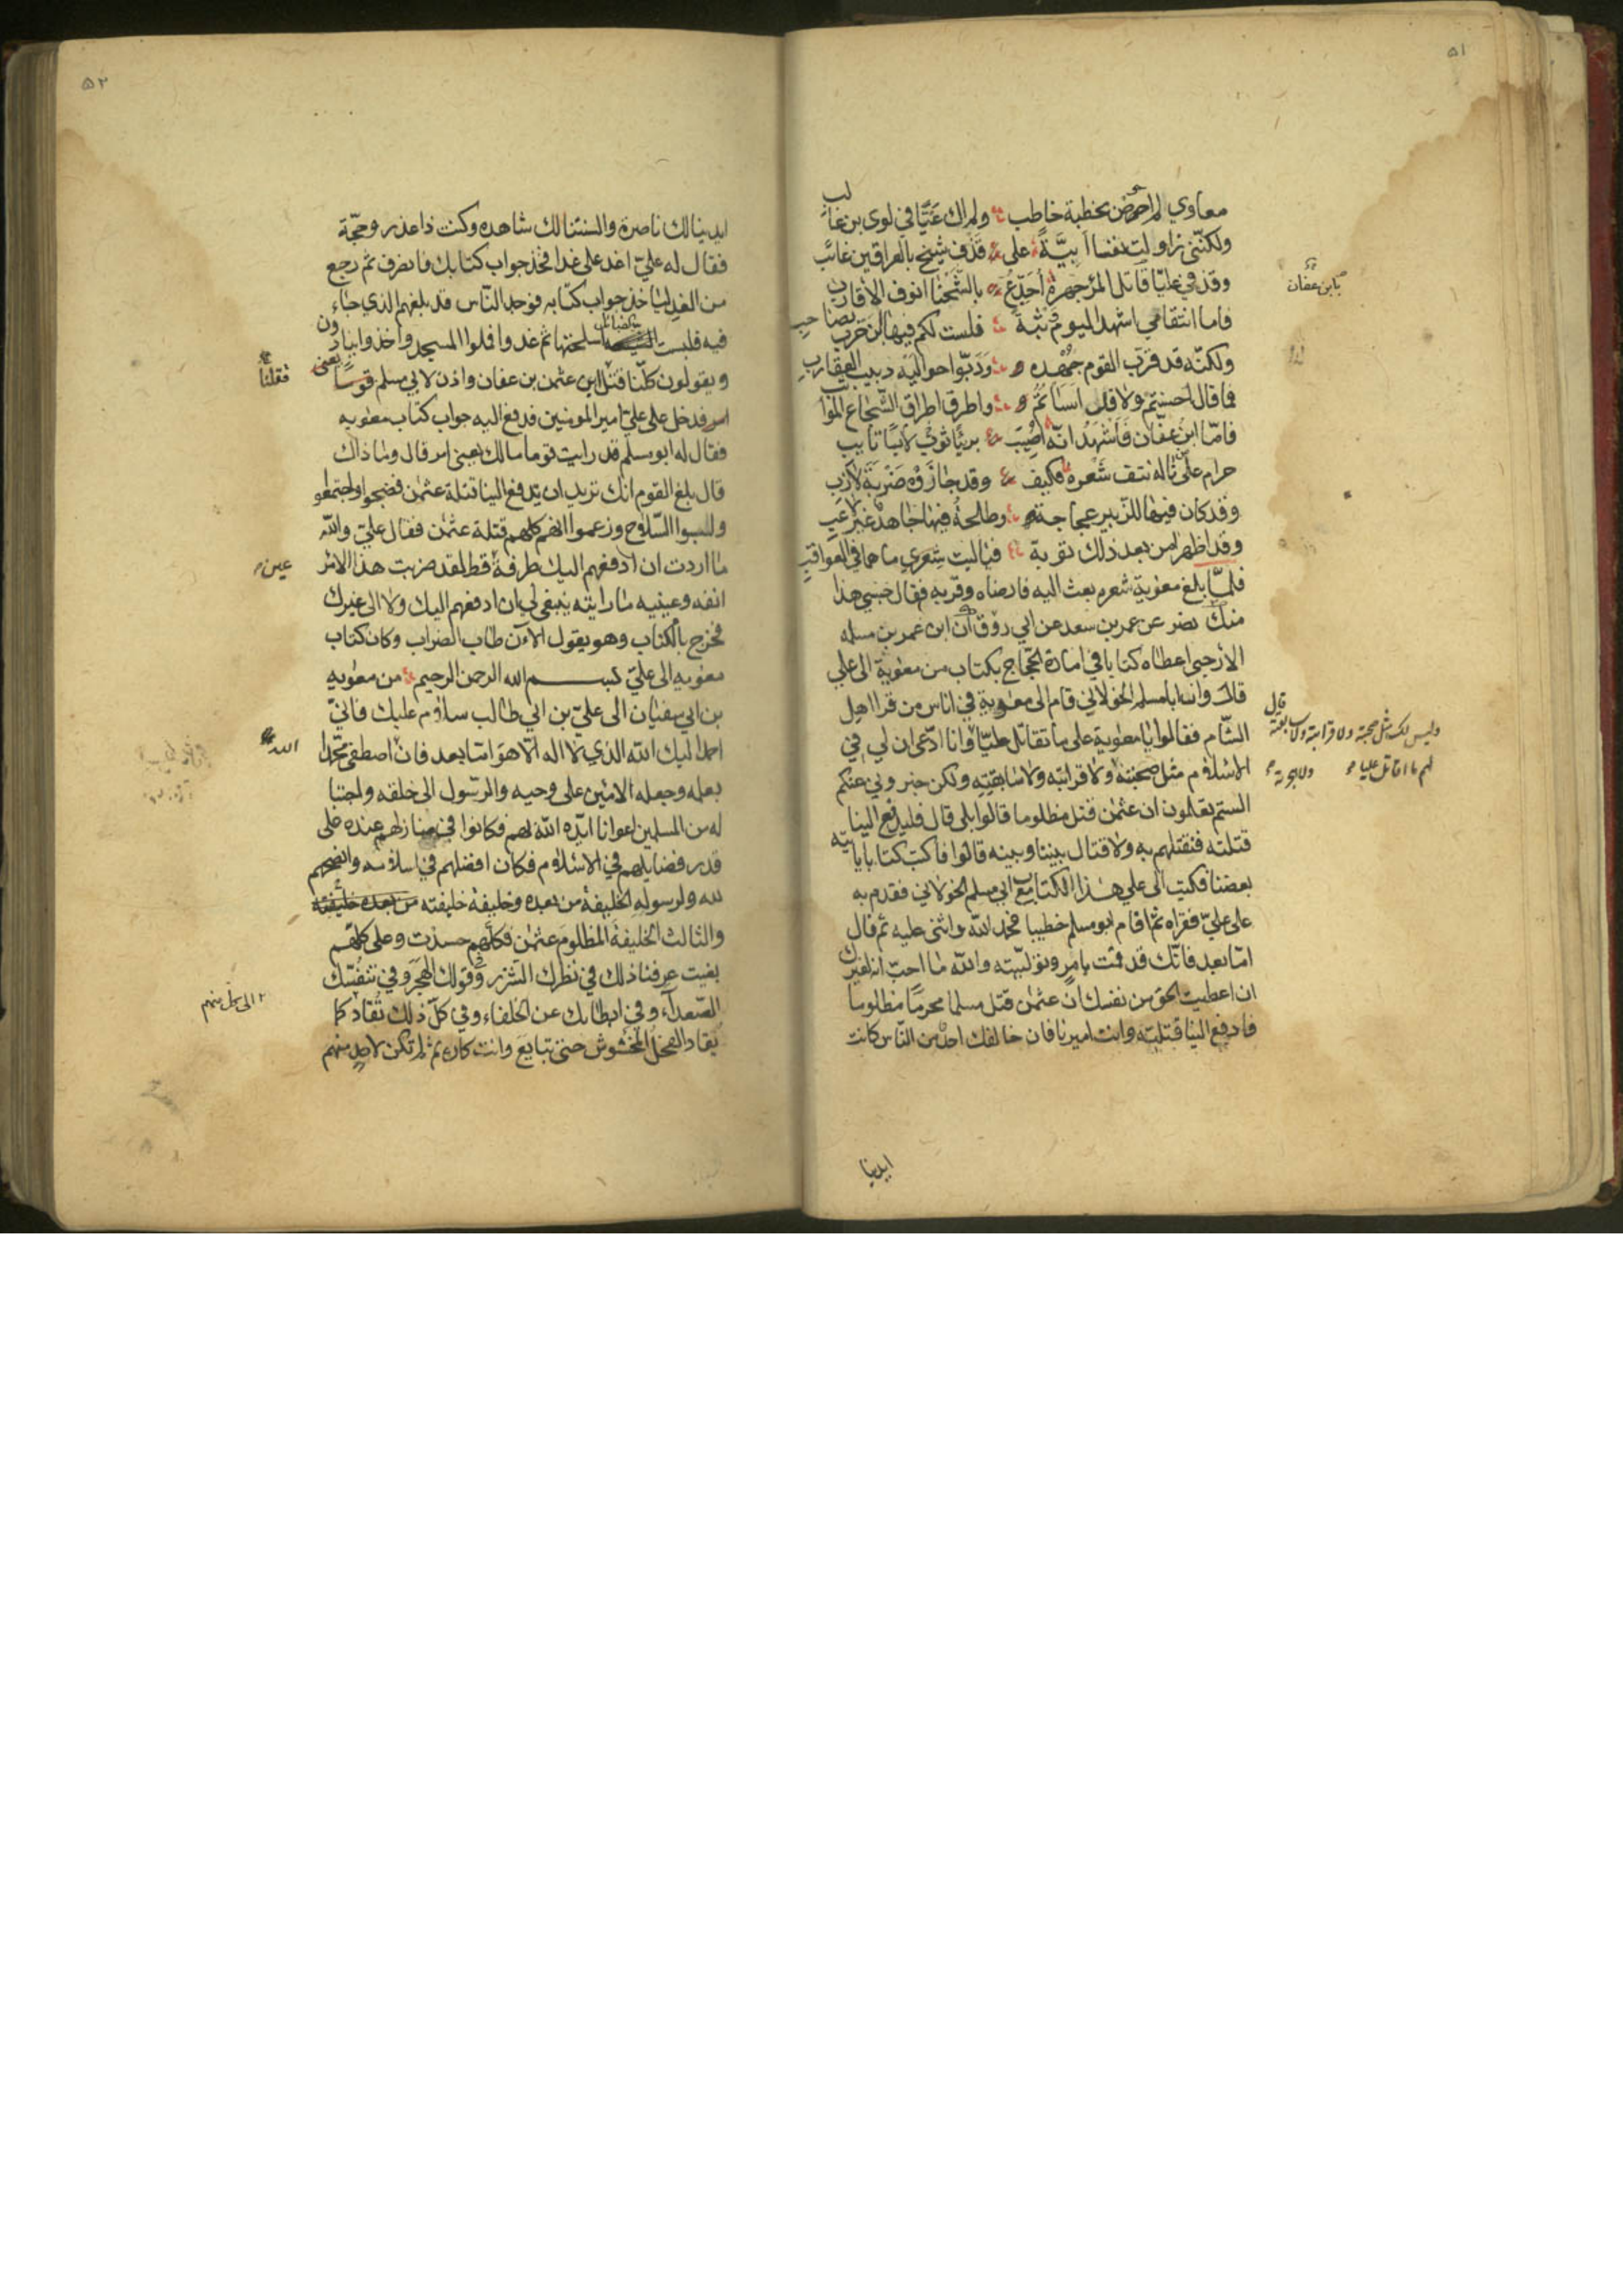 ٥١
معاوي لم احرض بخطبة خاطب ولم اك عَيًّا في لوي بن غالب
ولكنّني زاولت نفسا ابيَّةً على قَذْف شيخ بالعراقين غائب
وقذفي عليّا قاتل المرٔ جهرة اُجَدِّعُ بالشّحنا انوف الأقارب
بابن عفان
فاما انتقامي اشهد اليوم وثبةً فلست لكم فيها ابن حرب بصاحب
ولكنّه قد قرّب القوم جهده ودَبّوا حواليه دبيب العقارب
فما قال احسنتم ولا قد اسأتم واطرق اطراق الشجاع المواثب
فامّا ابن عفّان فاشهد انّه اصيب بريًا ثوبٌ لابسًا تايب
حرام على ثاله نتف شَعْره فكيف وقد جازوه ضَرْبَةَ لازب
وقد كان فيها للزبير عجاجة وطلحة فيها جاهدٌ غير لاعب
وقد اظهرا من بعد ذلك توبة فياليت شعري ما هما في العواقب
فلمّا بلغ معوية شعره بعث اليه فارضاه وقرّبه فقال حسبي هذا
منك نصر عن عمر بن سعد عن ابي روق ان ابن عمر بن مسلمه
الارحبي اعطاه كتابا في امارة الحجاج بكتاب من معوية الى علي
قال وان ابا مسلم الخولاني قام الى معوية في اناس من قرا اهل
الشّام فقالوا يا معوية على ما تقاتل عليّا وانا ادّعي ان لي في
وليس لك مثل صحبته ولا قرابته ولا سابقته قال
لهم ما اقاتل عليا ولا هجرته
الاسلام مثل صحبته ولا قرابته ولا سابقته ولكن خبروني عنكم
الستم تعلمون ان عثمٰن قتل مظلوما قالوا بلى قال فليدفع الينا
قتلته فنقتلهم به ولا قتال بيننا وبينه قالوا فاكتب كتابا ياتيه
بعضنا فكتب الى علي هذا الكتاب مع ابي مسلم الخولاني فقدم به
على عليّ فقراه ثم قام ابو مسلم خطيبا فحمد الله واثنى عليه ثم قال
امّا بعد فانّك قد قمت بامرٍ وتولّيته والله ما احبّ انه لغيرك
ان اعطيت الحق من نفسك انّ عثمٰن قتل مسلما محرمًا مظلوما
فادفع الينا قتلته وانت اميرنا فان خالفك احد من النّاس كانت
ايدينا
٥٢
ايدينا لك ناصرة والسنتنا لك شاهده وكنت ذا عذر وحجّة
فقال له عليّ اغد على غدا فخذ جواب كتابك فانصرف ثم رجع
من الغد لياخذ جواب كتابه فوجد النّاس قد بلغهم الذي جاء
فيه فلبست اسلحتها ثم غدوا فملوا المسجد واخذوا ينادون
ويقولون كلّنا قتل ابن عثمن بن عفان واذن لابي مسلم
فقلنا
فدخل على عليّ امير المومنين فدفع اليه جواب كتاب معويه
فقال له ابو مسلم قد رايت قوما مالك يعني امر قال وما ذاك
قال بلغ القوم انك تريد ان تدفع الينا قتلة عثمٰن فضجوا واجتمعوا
ولبسوا السّلاح وزعموا انهم كلهم قتلة عثمٰن فقال عليّ والله
ما اردت ان ادفعهم اليك طرفة قط لقد ضربت هذا الامر
عين
انفه وعينيه ما رايته ينبغي لي ان ادفعهم اليك ولا الى غيرك
فخرج بالكتاب وهو يقول الآن طاب الضراب وكان كتاب
معويه الى عليّ بسم الله الرحمن الرحيم من معويه
بن ابي سفيان الى عليّ بن ابي طالب سلام عليك فانيّ
احمد اليك الله الذي لا اله الا هو اما بعد فان اصطفى محمدا
الله
بعلمه وجعله الامين على وحيه والرسول الى خلقه واجتبا
له من المسلمين اعوانا ايّده الله بهم فكانوا في منازلهم عنده على
قدر فضايلهم في الاسلام فكان افضلهم في اسلامه وانصحهم
لله ولرسوله الخليفة من بعده وخليفة خليفته من بعده خليفته
والثالث الخليفة المظلوم عثمٰن فكلّهم حسدت وعلى كلّهم
بغيت عرفنا ذلك في نظرك الشزر وقولك الهجر وفي تنفّسك
الصّعداء وفي ابطائك عن الخلفاء وفي كلّ ذلك تقاد كما
الى كل منهم
يُقاد الفحل المخشوش حتى تبايع وانت كاره ثم لم تكن لاحد منهم